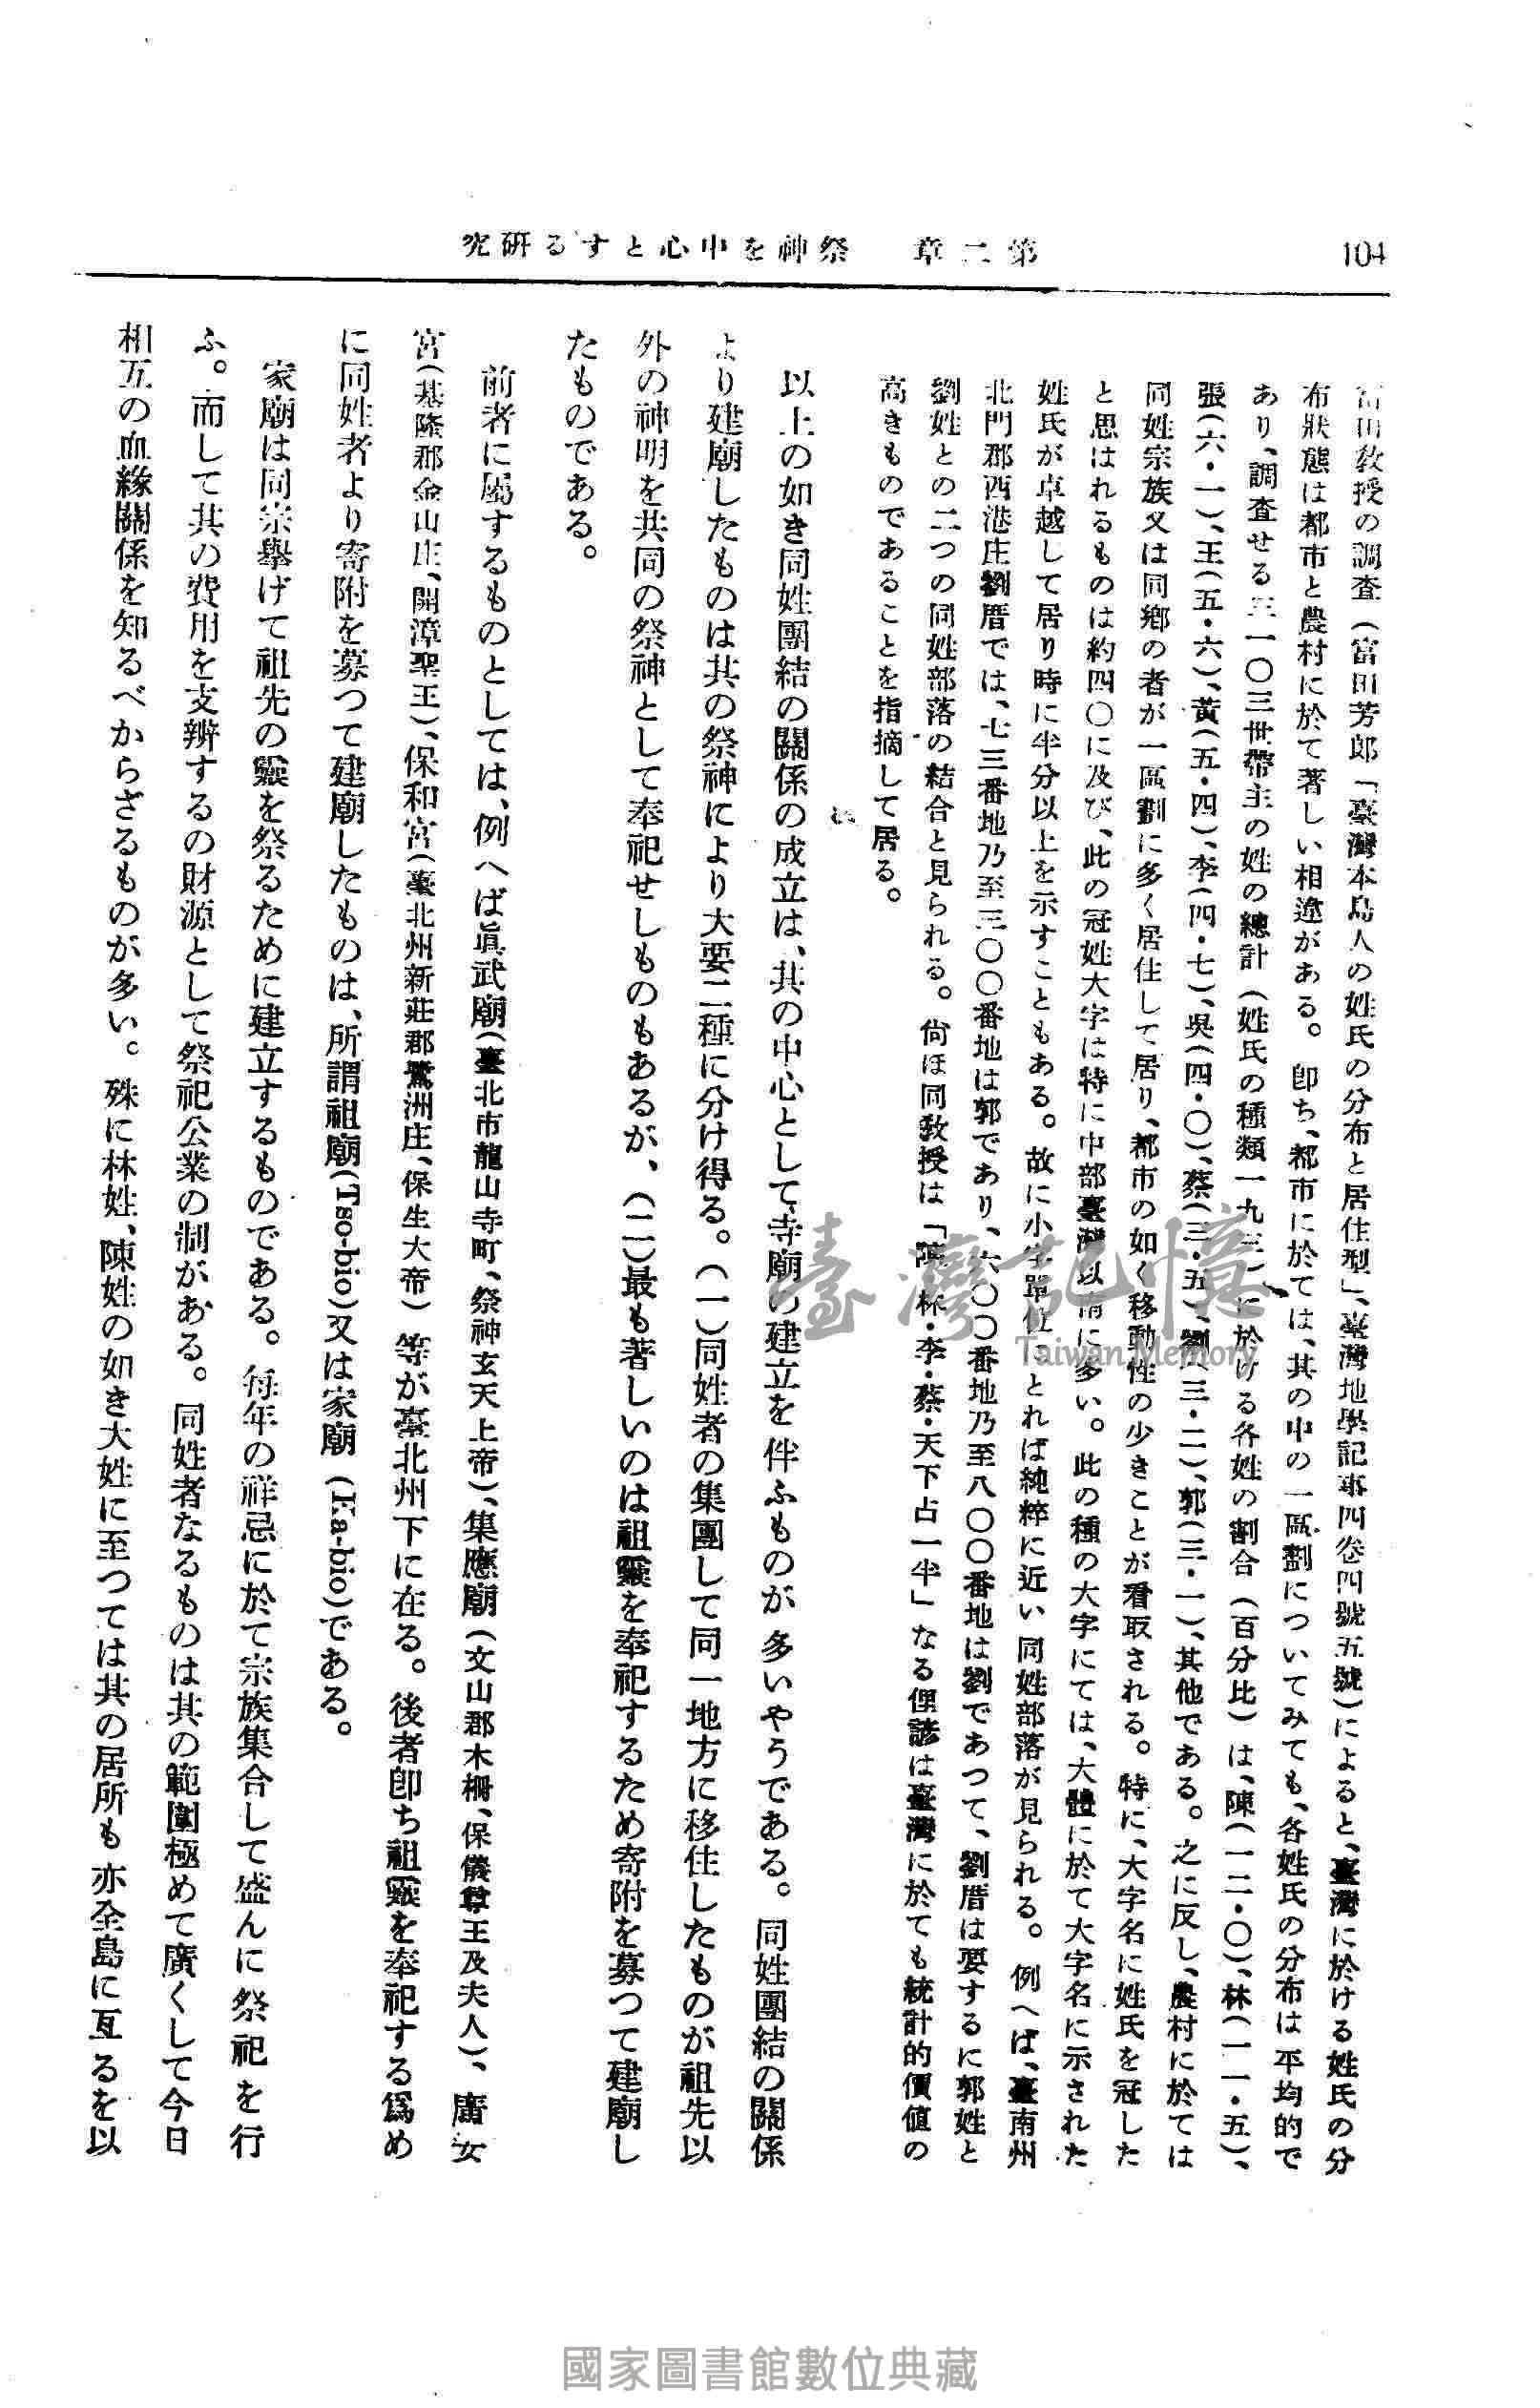 104
第二章 祭神を中心とする研究
富田敎授の調査(富田芳郎「臺灣本島人の姓氏の分布と居住型」、臺灣地學記事四卷四號五號)によると、臺灣に於ける姓氏の分
布狀態は都市と農村に於て著しい相違がある。卽ち、都市に於ては、其の中の一區劃についてみても、各姓氏の分布は平均的で
あり、調査せる三一〇三世帶主の姓の總計(姓氏の種類一九三)に於ける各姓の割合(百分比)は、陳(一二・〇)、林(一一・五)、
張(六・一)、王(五・六)、黃(五・四)、李(四・七)、吳(四・〇)、蔡(三・五)、劉(三・二)、郭(三・一)、其他である。之に反し、農村に於ては
同姓宗族又は同鄕の者が一區劃に多く居住して居り、都市の如く移動性の少きことが看取される。特に、大字名に姓氏を冠した
と思はれるものは約四〇に及び、此の冠姓大字は特に中部臺灣以南に多い。此の種の大字にては、大體に於て大字名に示された
姓氏が卓越して居り時に半分以上を示すこともある。故に小字單位にとれば純粹に近い同姓部落が見られる。例へば、臺南州
北門郡西港庄劉厝では、七三番地乃至三〇〇番地は郭であり、六〇〇番地乃至八〇〇番地は劉であつて、劉厝は要するに郭姓と
劉姓との二つの同姓部落の結合と見られる。尙ほ同敎授は「陳・林・李・蔡・天下占一半」なる俚諺は臺灣に於ても統計的價値の
高きものであることを指摘して居る。
以上の如き同姓團結の關係の成立は、其の中心として寺廟の建立を伴ふものが多いやうである。同姓團結の關係
より建廟したものは其の祭神により大要二種に分け得る。(一)同姓者の集團して同一地方に移住したものが祖先以
外の神明を共同の祭神として奉祀せしものもあるが、(二)最も著しいのは祖靈を奉祀するため寄附を募つて建廟し
たものである。
前者に屬するものとしては、例へば眞武廟(臺北市龍山寺町、祭神玄天上帝)、集應廟(文山郡木柵、保儀尊王及夫人)、廣安
宮(基隆郡金山庄、開漳聖王)、保和宮(臺北州新莊郡鷺洲庄、保生大帝)等が臺北州下に在る。後者卽ち祖靈を奉祀する爲め
に同姓者より寄附を募つて建廟したものは、所謂祖廟(Tso-bio)又は家廟(Ka-bio)である。
家廟は同宗擧げて祖先の靈を祭るために建立するものである。每年の祥忌に於て宗族集合して盛んに祭祀を行
ふ。而して其の費用を支辨するの財源として祭祀公業の制がある。同姓者なるものは其の範圍極めて廣くして今日
相互の血緣關係を知るべからざるものが多い。殊に林姓、陳姓の如き大姓に至つては其の居所も亦全島に亙るを以
臺灣記憶
Taiwan Memory
國家圖書館數位典藏